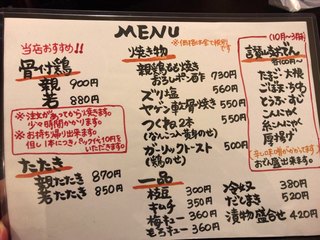 MENU
※価格は全て税別です
当店おすすめ!!
骨付鶏
親 900円
若 880円
※注文があってから焼きます。
少々時間かかります。
※お持ち帰り出来ます。
但し1本につき、パック代10円を
いただきます。
たたき
親たたき 870円
若たたき 850円
焼き物
親鶏もも焼き
おろしポン酢 730円
ズリ塩 560円
ヤゲン軟骨焼き 550円
つくね2本 550円
(なんこつ入り黄身のせ)
ガーリックトースト 500円
(鶏のせ)
一品
枝豆 300円
キムチ 350円
梅キュー 360円
もろキュー 360円
冷奴 380円
だしまき 520円
漬物盛合せ 420円
(10月〜3月頃)
讃岐おでん
各100円〜
たまご・大根
ごぼ天・ちくわ
とうふ・すじ
こんにゃく
糸こんにゃく
厚揚げ
辛し味噌がかかってます。
おでん盛出来ます。